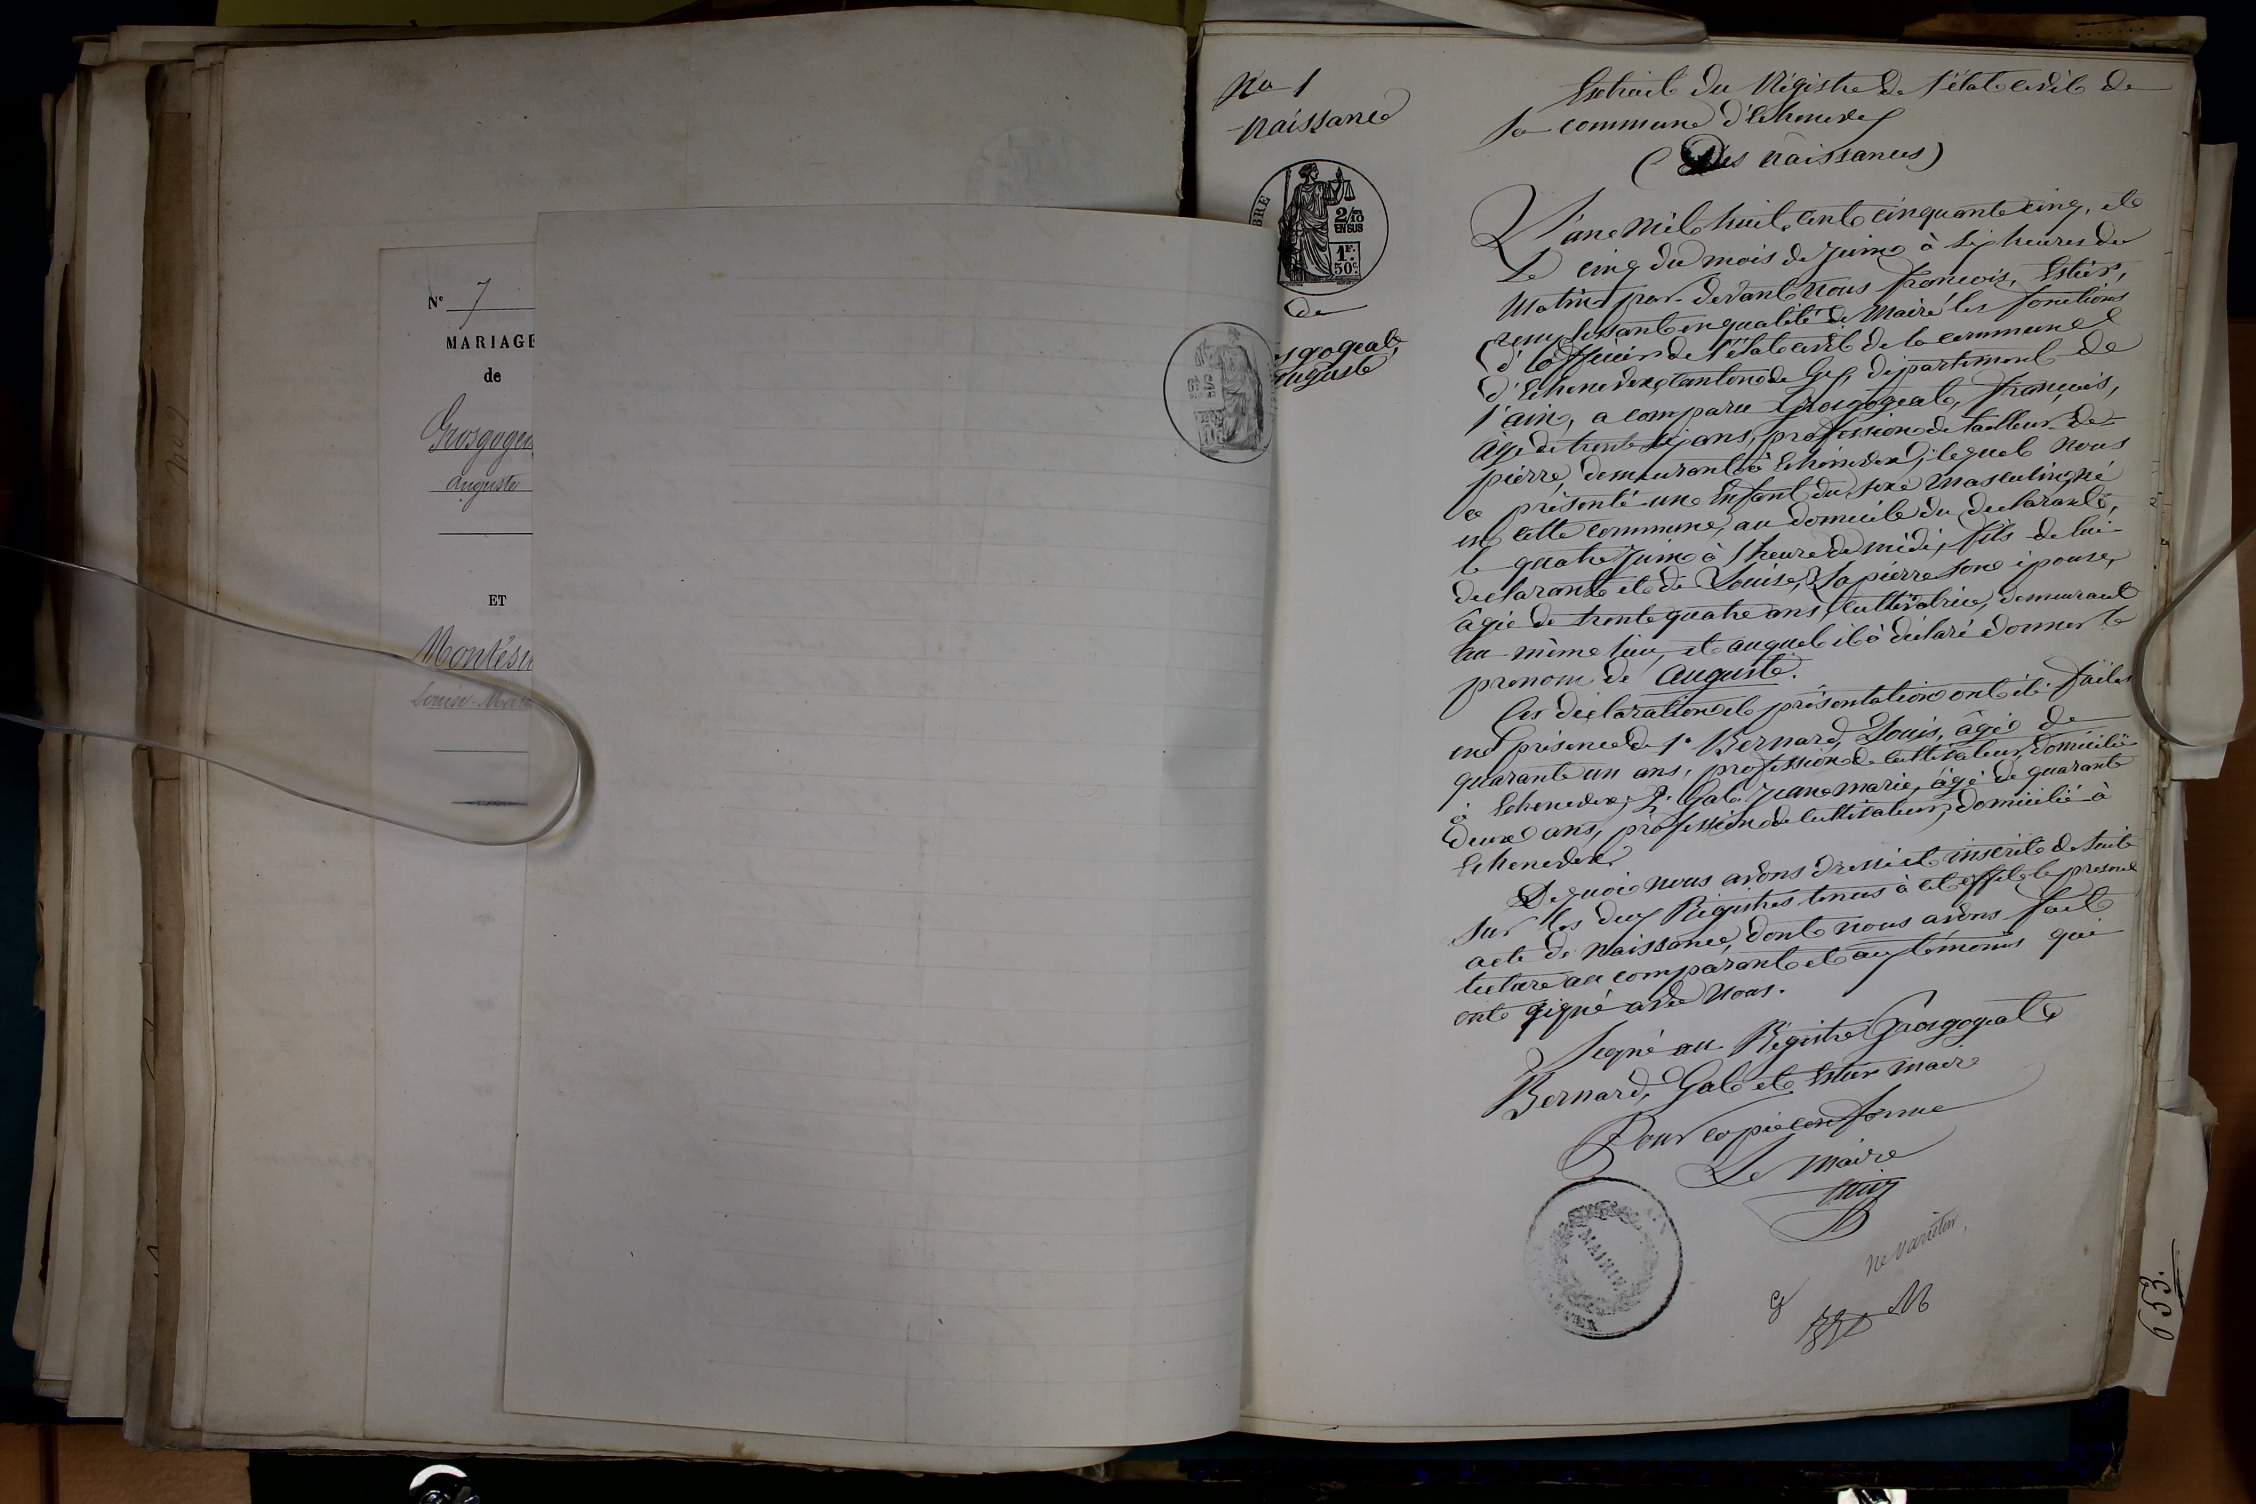 Nº 7
MARIAGE
de
Grosgogea
auguste
ET
Montésu
Louise-Marie
No 1
Naissance
BRE
2/10
EN SUS
1F.
50c
de
sgogeat,
auguste
Extrait du Régistre de l'état civil de
la commune d'Echenevex
(Des naissances)
L'an Mil huit cent cinquante cinq, et
le cinq du mois de Juin à six heures du
Matin par-devant Nous François, Estier,
remplissant en qualité de Maire les fonctions
d'officier de l'état civil de la commune
d'Echenevex, canton de Gex, département de
l'ain, a comparu Grosgogeat, François,
âgé de trente six ans, profession de tailleur de
pierre, demeurant à Echenevex, lequel nous
a présenté un Enfant du sexe Masculin, né
en cette commune, au domicile du declarant,
le quatre Juin à 1 heure de midi, fils de lui
declarant et de Louise, Lapierre son épouse,
agée de trente quatre ans, cultivatrice, demeurant
au même lieu, et auquel il à déclaré donner le
prenom de Auguste.
Ces déclaration et présentation ont été faites
en présence de 1º Bernard, Louis, âgé de
quarante un ans, profession de cultivateur, domicilié
à Echenevex; 2º Gal Jean marie, âgé de quarante
deux ans, profession de cultivateur, domicilié à
Echenevex.
De quoi nous avons dressé et inscrit de suite
sur les deux Régistres tenus à cet effet le présent
acte de Naissance, dont nous avons fait
lecture au comparant et aux témoins qui
ont signé avec Nous.
Signé au Régistre Grosgogeat,
Bernard, Gal et Estier maire
Pour copie conforme
Le Maire
ne varietur,
MAIRIE
653.